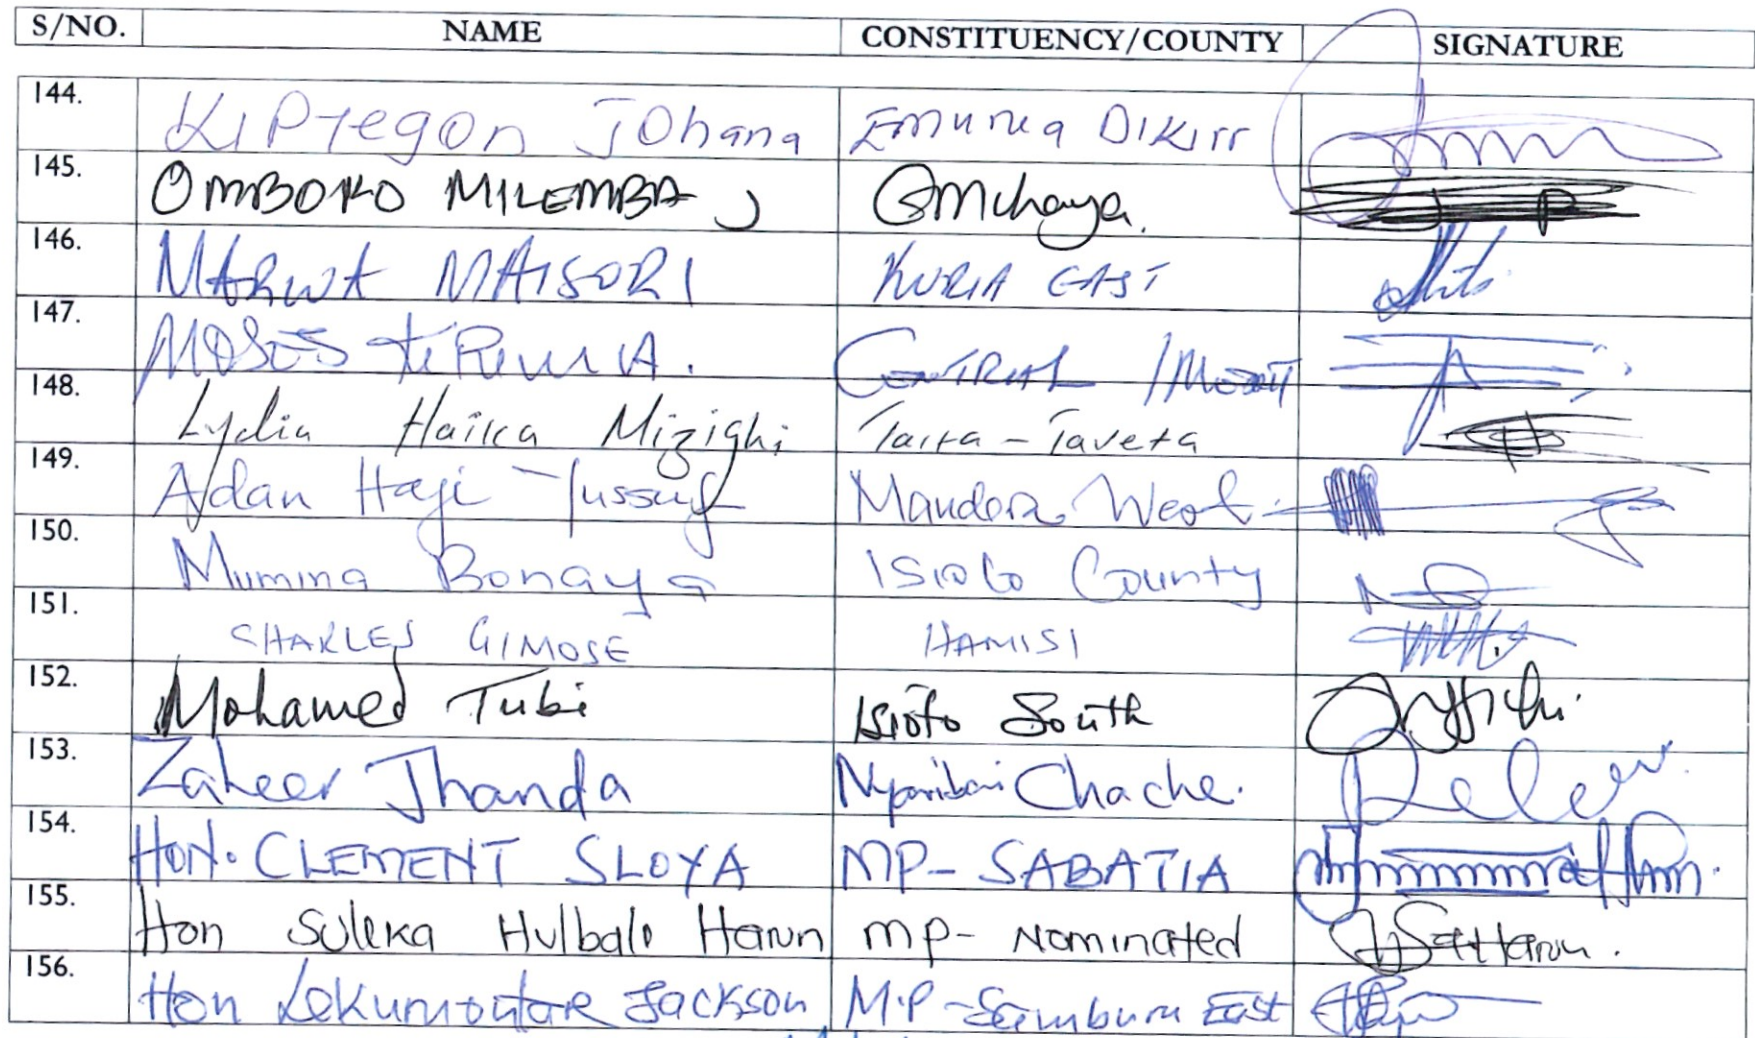 S/NO. NAME CONSTITUENCY/COUNTY SIGNATURE
144. Kiptegon Johana Emurua Dikirr
145. OMBOKO MILEMBA J Emuhaya.
146. MARWA MAISORI KURIA EAST
147. MOSES KIRIMA. CENTRAL /IMENTI
148. Lydia Haika Mizighi Taita - Taveta
149. Adan Haji Yussuf Mandera West
150. Mumina Bonaya Isiolo County
151. CHARLES GIMOSE HAMISI
152. Mohamed Tubi Isiolo South
153. Zaheer Jhanda Nyaribari Chache.
154. HON. CLEMENT SLOYA MP- SABATIA
155. Hon Suleka Hulbale Harun MP- Nominated
156. Hon Lekumontare Jackson M.P - Samburu East